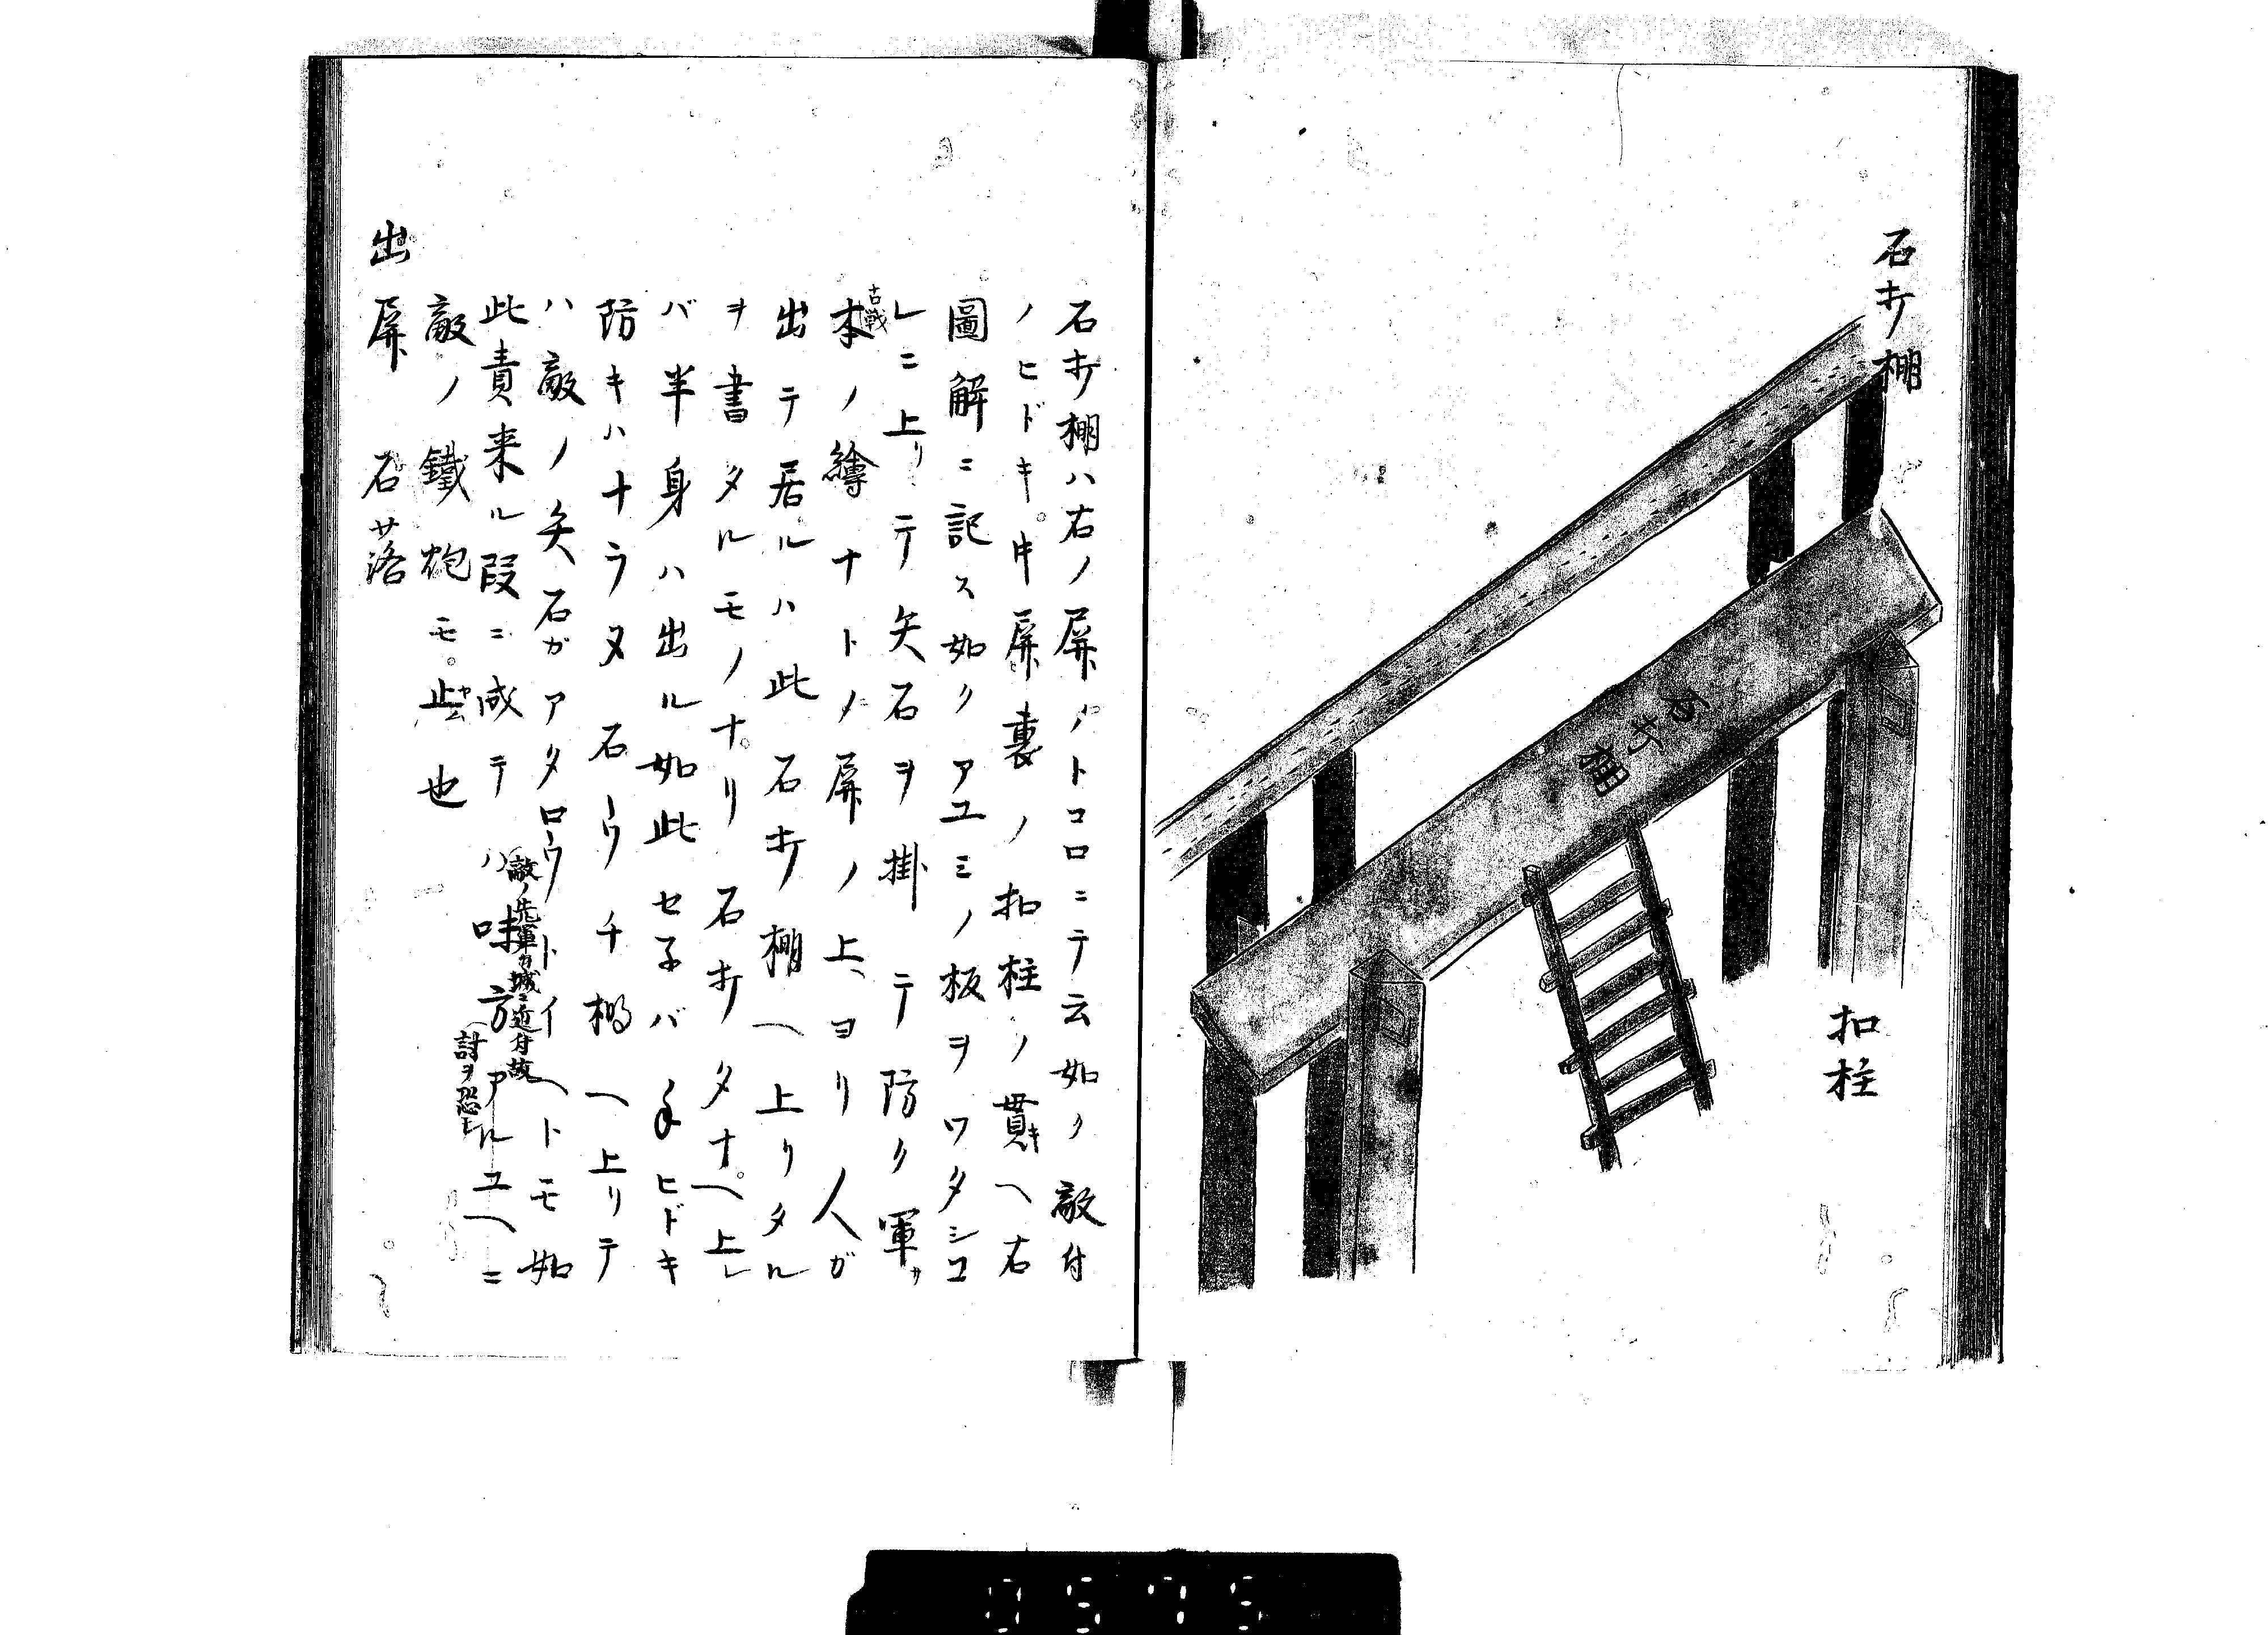 石打棚
石打棚
扣柱
石打棚ハ右ノ屏ノトコロニテ云如ク敵付
ノヒドキ時屏裏ノ扣柱ノ貫キヘ右
圖解ニ記ス如クアユミノ板ヲワタシコ
レニ上リテ矢石ヲ掛テ防ク軍カ
古戦
本ノ繪ナトノ屏ノ上ヘヨリ人ガ
出テ居ルハ此石打棚ヘ上リタル
ヲ書タルモノナリ石打タナヘ上レ
バ半身ハ出ル如此セ子バ手ヒドキ
防キハナラヌ石ウチ棚ヘ上リテ
ハ敵ノ矢石ガアタロウトイヘトモ如
此責来ル段ニ成テハ味方アルユヘニ
敵ノ先軍カ城ニ近付故
討ヲ恐レ
敵ノ鐵炮モ些也
出屏 石落
0575